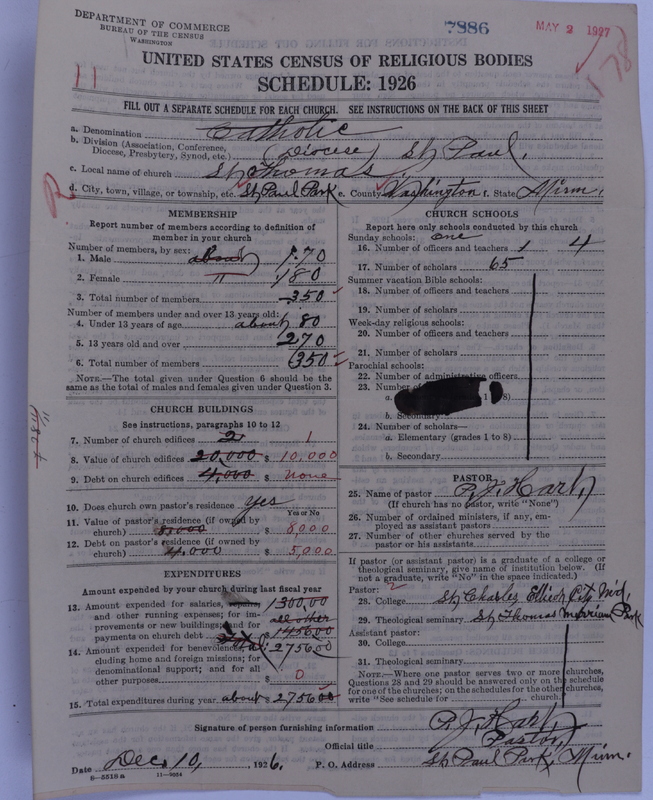 DEPARTMENT OF COMMERCE
BUREAU OF THE CENSUS
WASHINGTON
7886
MAY 2 1927
178
UNITED STATES CENSUS OF RELIGIOUS BODIES
SCHEDULE: 1926
FILL OUT A SEPARATE SCHEDULE FOR EACH CHURCH. SEE INSTRUCTIONS ON THE BACK OF THIS SHEET
a. Denomination Catholic
b. Division (Association, Conference, Diocese, Presbytery, Synod, etc.) (Diocese) St. Paul.
c. Local name of church St. Thomas
d. City, town, village, or township, etc. St. Paul Park e. County Washington f. State Minn.
MEMBERSHIP
Report number of members according to definition of member in your church
Number of members, by sex:
1. Male about 170
2. Female " 180
3. Total number of members 350
Number of members under and over 13 years old:
4. Under 13 years of age about 80
5. 13 years old and over 270
6. Total number of members 350
NOTE.—The total given under Question 6 should be the same as the total of males and females given under Question 3.
CHURCH BUILDINGS
See instructions, paragraphs 10 to 12
7. Number of church edifices 2 1
8. Value of church edifices 20,000 $ 10,000
9. Debt on church edifices 4,000 $ none
10. Does church own pastor's residence yes
Yes or No
11. Value of pastor's residence (if owned by church) 8,000 $ 8,000
12. Debt on pastor's residence (if owned by church) 4,000 $ 5,000
EXPENDITURES
Amount expended by your church during last fiscal year
13. Amount expended for salaries, repairs, and other running expenses; for improvements or new buildings; and for payments on church debt $ 1300.00
all other
1456.00
14. Amount expended for benevolences, including home and foreign missions; for denominational support; and for all other purposes 2756.00
$ 0
15. Total expenditures during year about $ 2756.00
CHURCH SCHOOLS
Report here only schools conducted by this church
Sunday schools: one
16. Number of officers and teachers 1 4
17. Number of scholars 65
Summer vacation Bible schools:
18. Number of officers and teachers
19. Number of scholars
Week-day religious schools:
20. Number of officers and teachers
21. Number of scholars
Parochial schools:
22. Number of administrative officers
23. Number of
a. 1 8)
b. Secondary
24. Number of scholars—
a. Elementary (grades 1 to 8)
b. Secondary
PASTOR
25. Name of pastor P. J. Hart,
(If church has no pastor, write "None")
26. Number of ordained ministers, if any, employed as assistant pastors
27. Number of other churches served by the pastor or his assistants
If pastor (or assistant pastor) is a graduate of a college or theological seminary, give name of institution below. (If not a graduate, write "No" in the space indicated.)
Pastor:
28. College St. Charles Ellicott City Md.
29. Theological seminary St. Thomas Merriam Park
Assistant pastor:
30. College
31. Theological seminary
NOTE.—Where one pastor serves two or more churches, Questions 28 and 29 should be answered only on the schedule for one of the churches; on the schedules for the other churches, write "See schedule for church.
Signature of person furnishing information P. J. Hart,
Official title Pastor,
Date Dec. 10, 1926. P. O. Address St. Paul Park, Minn.
8—5518a 11—9034